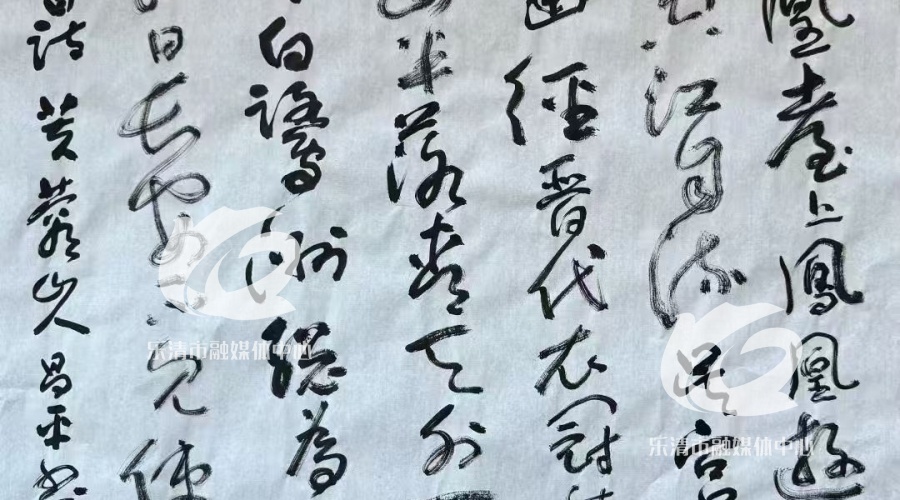 凰臺上鳳凰遊
江自流吳宮
經晉代衣冠
山半落青天外
白鷺洲總為
日長安不見使
詩 芙蓉山人昌平
乐清市融媒体中心
乐清市融媒体中心